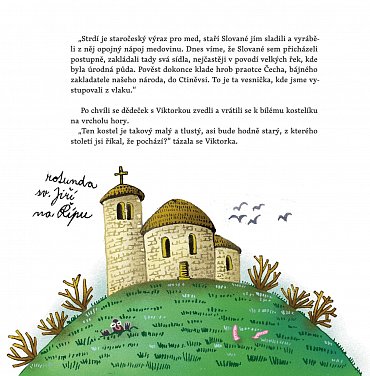 „Strdí je staročeský výraz pro med, staří Slované jím sladili a vyrábě-
li z něj opojný nápoj medovinu. Dnes víme, že Slované sem přicházeli
postupně, zakládali tady svá sídla, nejčastěji v povodí velkých řek, kde
byla úrodná půda. Pověst dokonce klade hrob praotce Čecha, bájného
zakladatele našeho národa, do Ctiněvsi. To je ta vesnička, kde jsme vy-
stupovali z vlaku.“
Po chvíli se dědeček s Viktorkou zvedli a vrátili se k bílému kostelíku
na vrcholu hory.
„Ten kostel je takový malý a tlustý, asi bude hodně starý, z kterého
století jsi říkal, že pochází?“ tázala se Viktorka.
rotunda
sv. Jiří
na Řípu